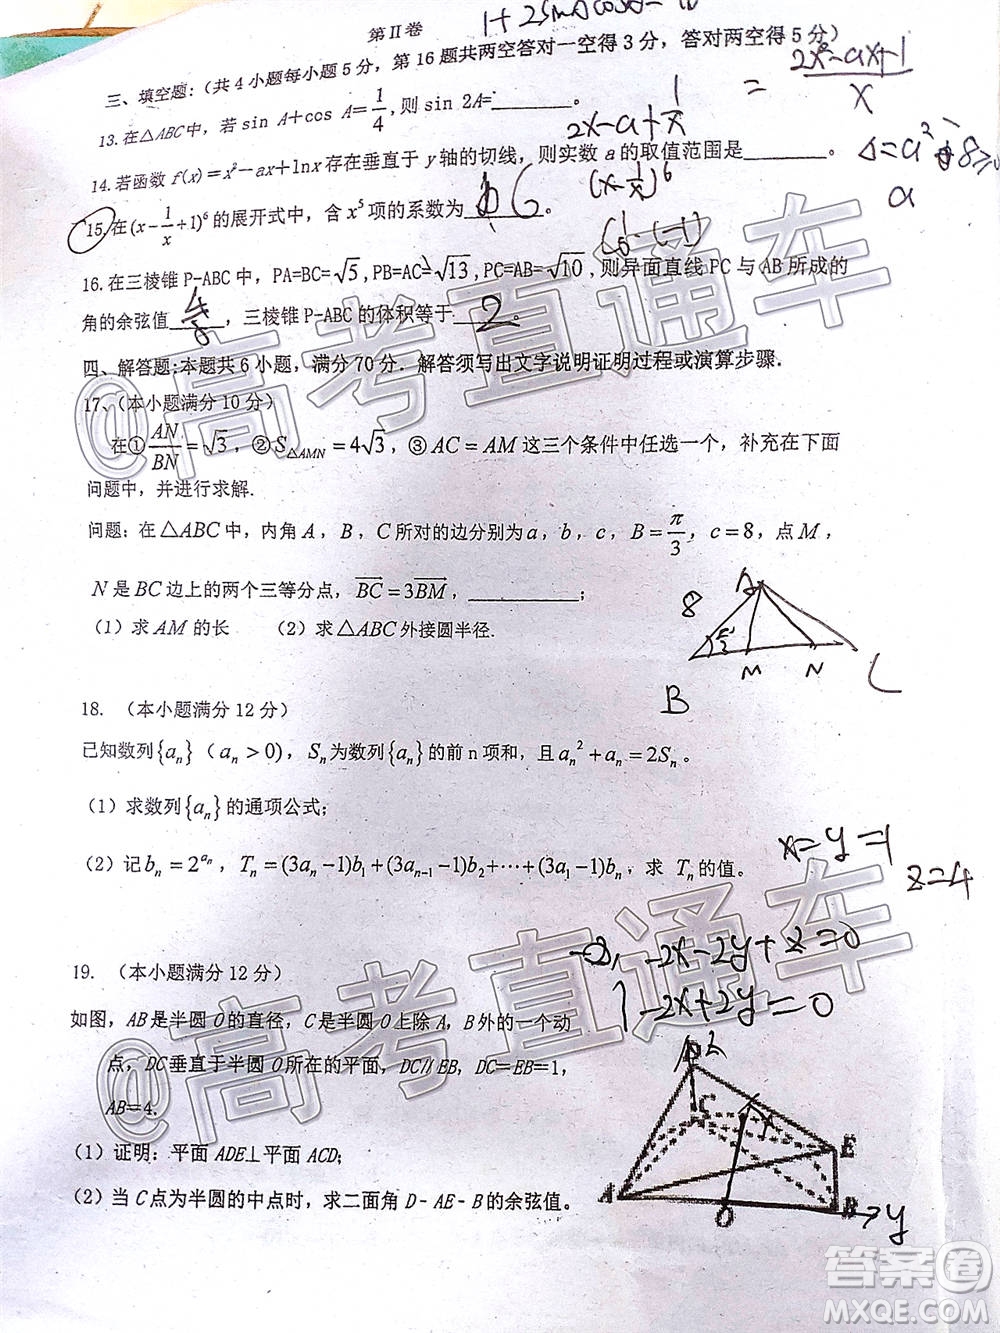 第Ⅱ卷
三、填空题:(共4小题每小题5分，第16题共两空答对一空得3分，答对两空得5分)
13.在△ABC中，若 sin A+cos A=1/4,则 sin 2A=______。
14.若函数 f(x)=x²-ax+lnx存在垂直于 y轴的切线，则实数 a的取值范围是______。
15.在(x-1/x+1)⁶的展开式中，含 x⁵项的系数为______。
16.在三棱锥P-ABC中，PA=BC=√5,PB=AC=√13,PC=AB=√10,则异面直线PC与AB所成的
角的余弦值______，三棱锥P-ABC的体积等于 2 。
四、解答题:本题共6小题，满分70分．解答须写出文字说明证明过程或演算步骤.
17、(本小题满分10分)
在①AN/BN=√3，②S△AMN=4√3，③AC=AM这三个条件中任选一个，补充在下面
问题中，并进行求解.
问题：在△ABC中，内角A，B，C所对的边分别为a，b，c，B=π/3，c=8，点M，
N是BC边上的两个三等分点，BC=3BM，______；
(1) 求AM的长 (2) 求△ABC外接圆半径.
18. (本小题满分12分)
已知数列{aₙ}（aₙ>0)，Sₙ为数列{aₙ}的前n项和，且aₙ²+aₙ=2Sₙ。
(1) 求数列{aₙ}的通项公式；
(2) 记bₙ=2^aₙ，Tₙ=(3aₙ-1)b₁+(3aₙ₋₁-1)b₂+⋯+(3a₁-1)bₙ，求 Tₙ的值。
19. (本小题满分12分)
如图，AB是半圆O的直径，C是半圆O上除A，B外的一个动
点，DC垂直于半圆O所在的平面，DC∥EB，DC=EB=1，
AB=4.
(1) 证明：平面ADE⊥平面ACD；
(2) 当C点为半圆的中点时，求二面角D-AE-B的余弦值。
2x²-ax+1
x
=
2x-a+1/x
(x-1/x)⁶
8
A
B
M
N
C
x=y=1
z=4
-2x-2y+z=0
-2x+2y=0
C
E
A
O
B
y
@高考直通车
@高考直通车
答案圈
MXQE.COM